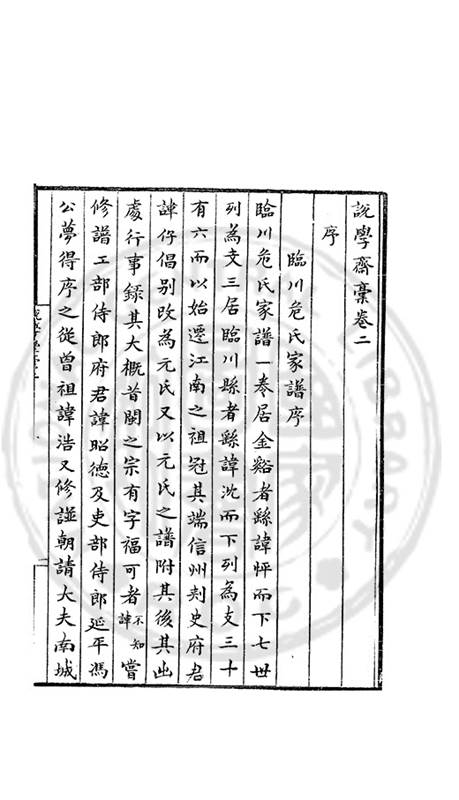 說學齋藁卷二
序
臨川危氏家譜序
臨川危氏家譜一卷居金谿者繇諱怦而下七世
列為支三居臨川縣者繇諱沈而下列為支三十
有六而以始遷江南之祖冠其端信州刾史府君
諱仔倡别改為元氏又以元氏之譜附其後其出
處行事錄其大概昔閩之宗有字福可者不知諱嘗
修譜工部侍郎府君諱昭德及吏部侍郎延平馮
公夢得序之從曾祖諱浩又修謚朝請大夫南城